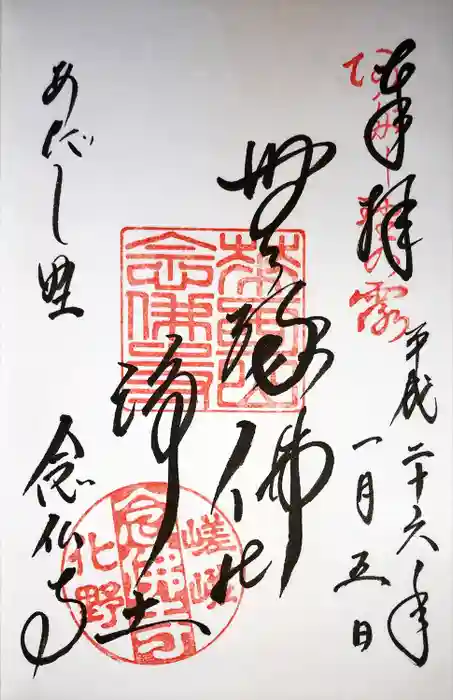 奉拝
平成二十六年
一月五日
無縁佛
浄土
華西山
念佛寺
嵯峨
念佛寺
化野
あだし野
念仏寺